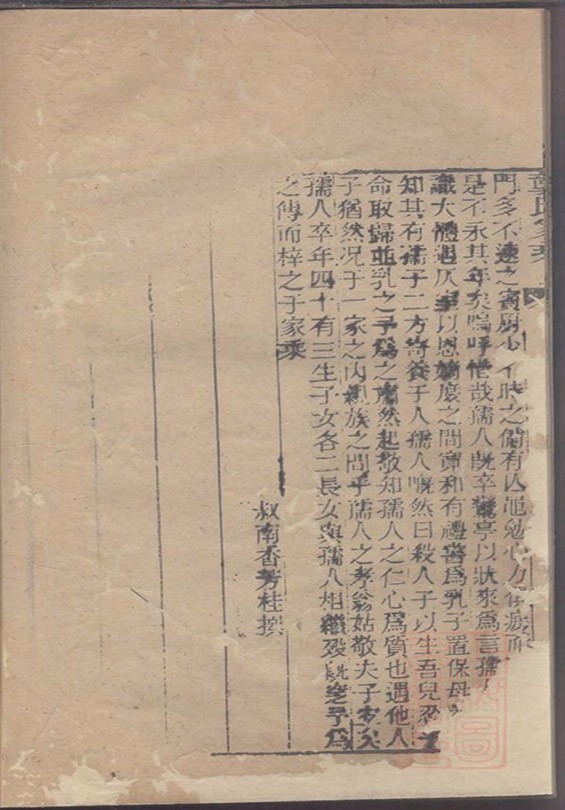 門多不速之賓厨少不時之備有以黽勉心力
是不永其年矣嗚呼惜哉孺人既卒鶯亭以狀來為言孺人
識大體遇仄室以恩嫡庶之間實和有禮嘗為乳子置保母
知其有孺子二方寄養于人孺人嘅然曰殺人子以生吾兒忍
命取歸並乳之予為之肅然起敬知孺人之仁心為質也遇他人
子猶然况于一家之内親族之間乎孺人之孝翁姑敬夫子
孺人卒年四十有三生子女各二長女與孺人相繼歿既
之傳而梓之于家乘
叔南香芳桂撰